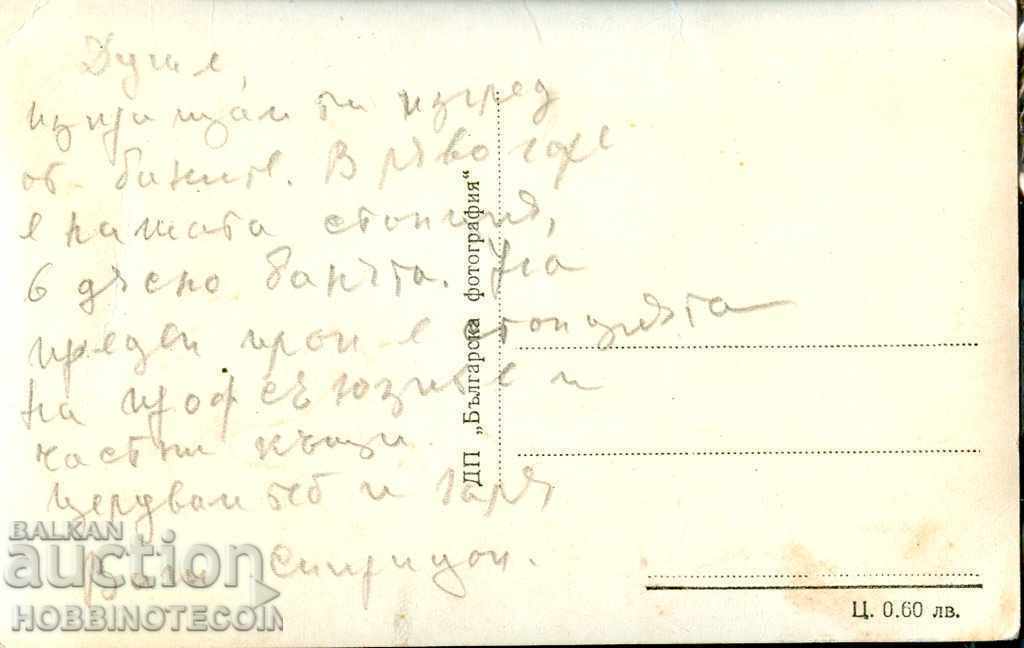 Душе,
изпращам ти изглед
от баните. В ляво горе
е нашата стопния,
в дясно банята. На
преден план е стопцията
на профсъюзите и
частни къщи.
Целувам теб и
Ваш Спиридон.
ДП „Българска фотография“
Ц. 0.60 лв.
BALKAN
auction
HOBBINOTECOIN